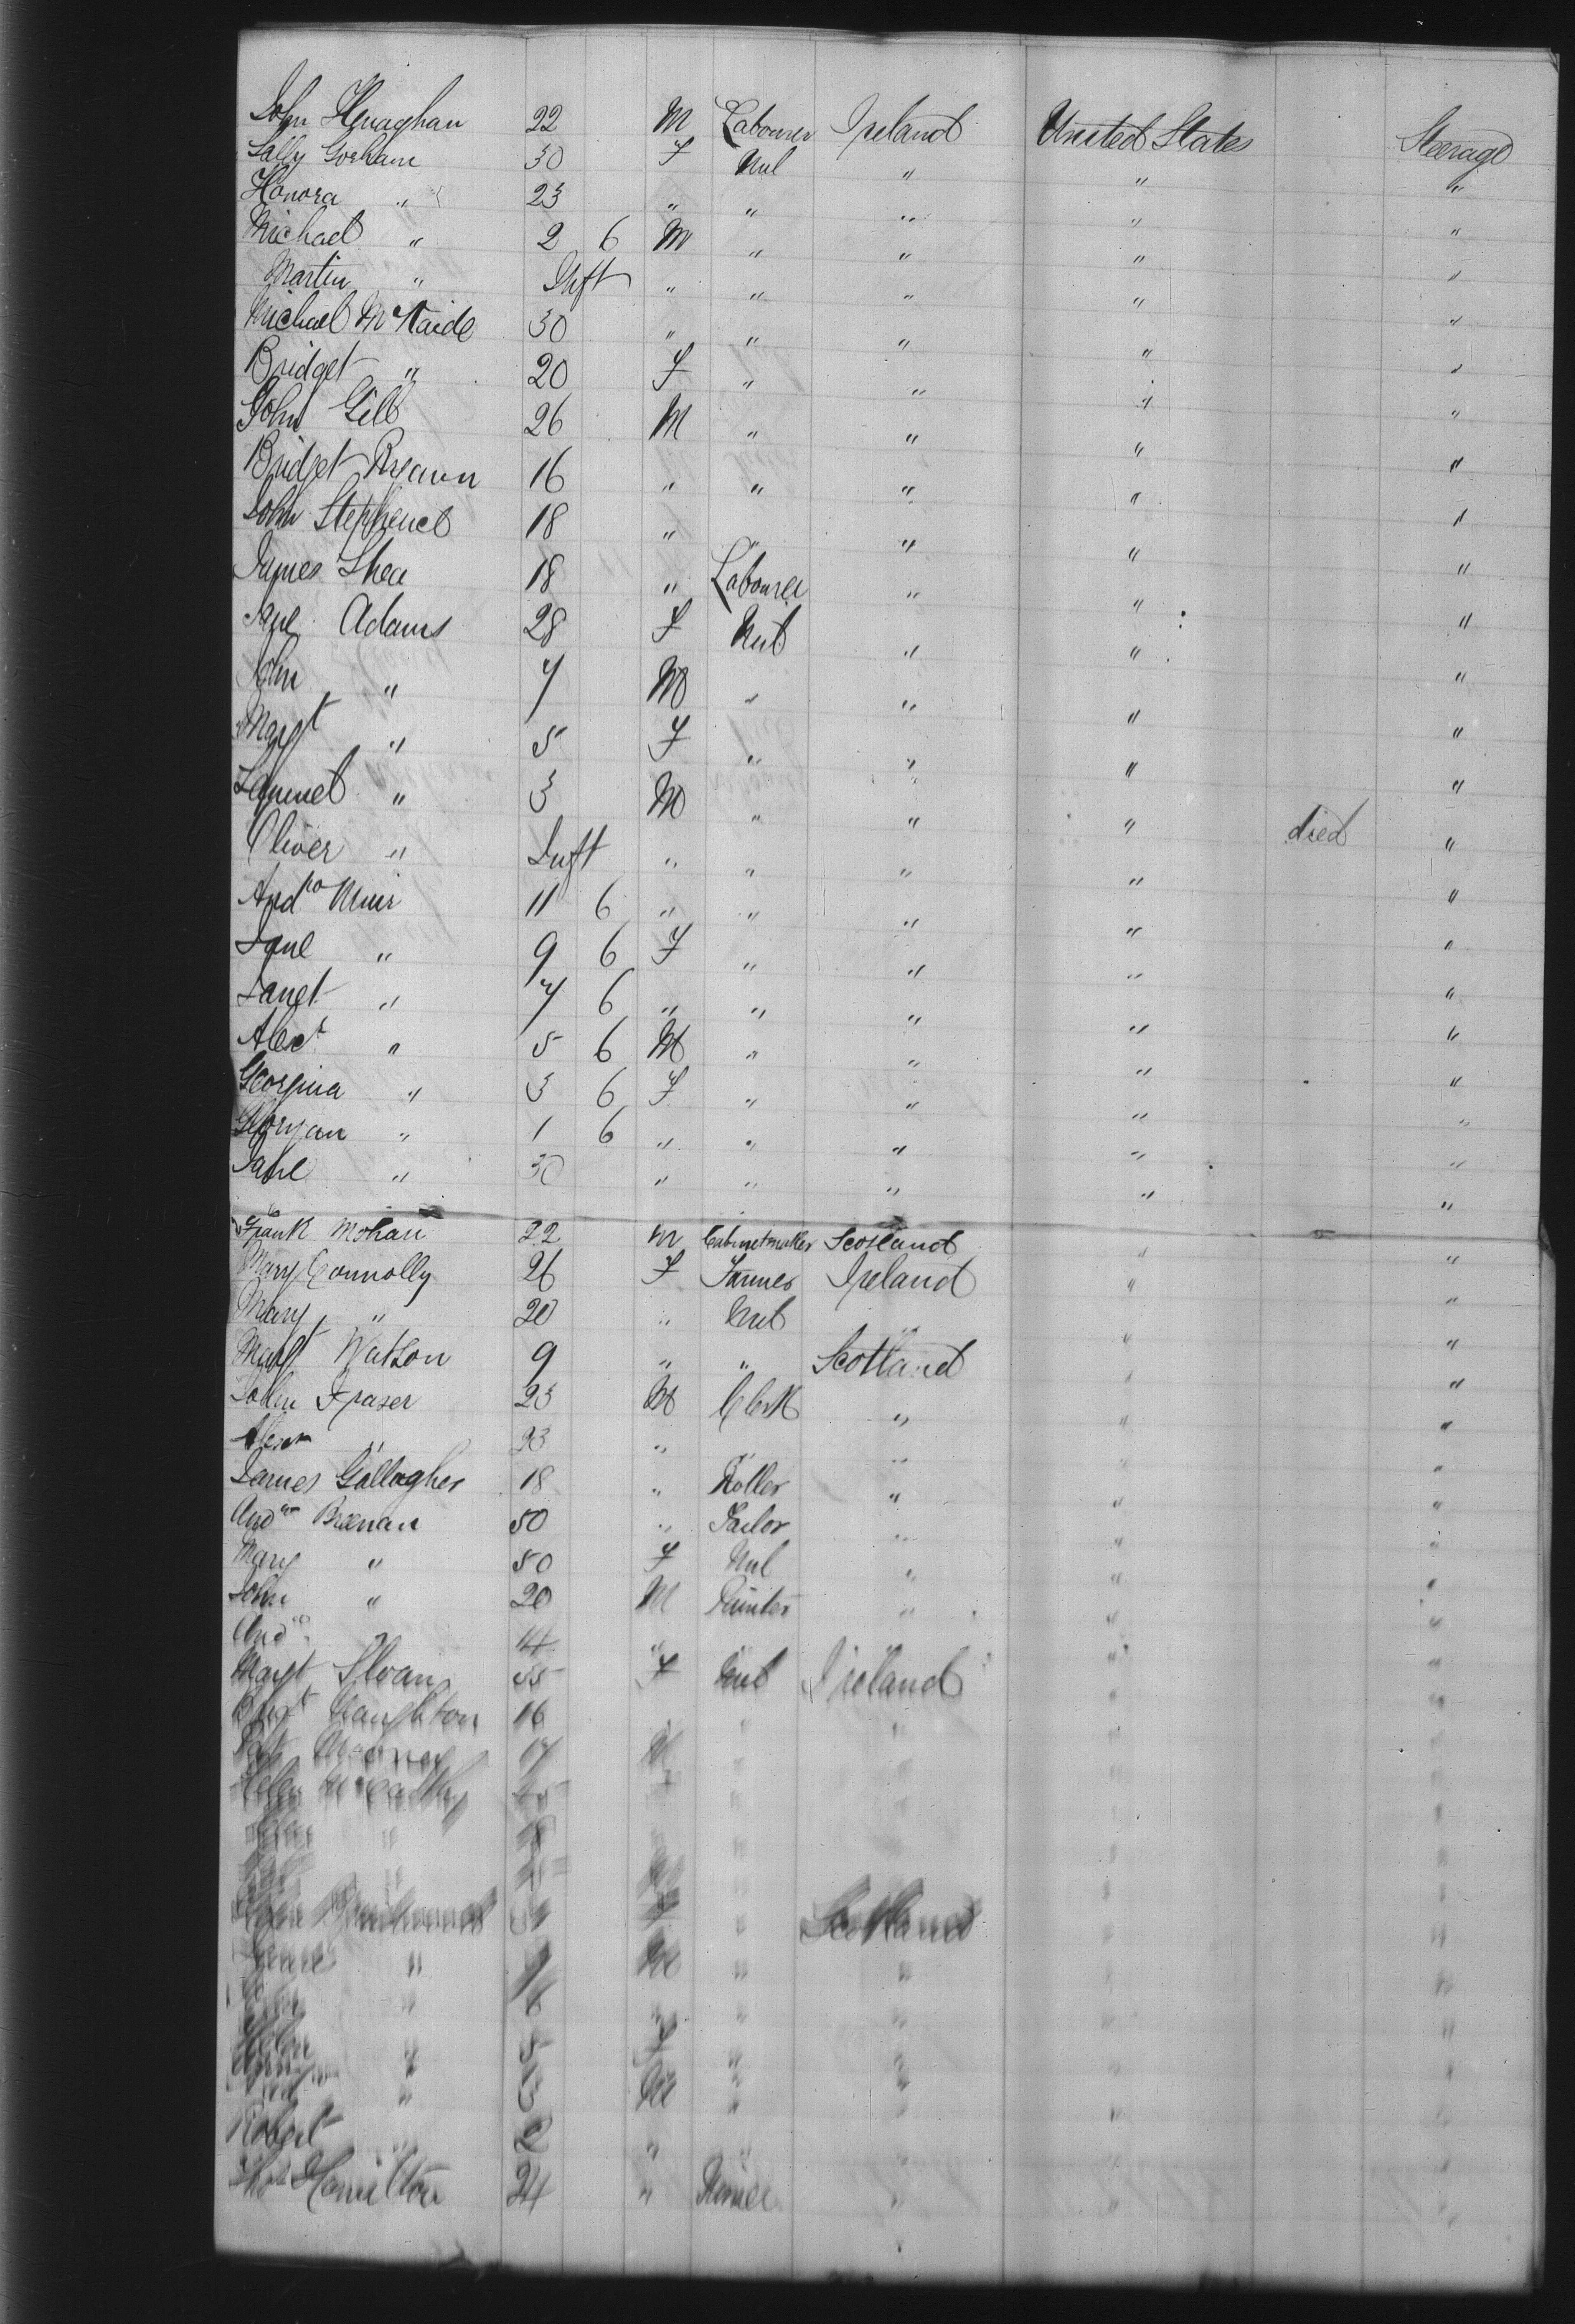 John Henaghan 22 M Labourer Ireland United States Steerage
Sally Gorham 30 F Nil " " "
Honora " 23 " " " " "
Michael " 2 6 M " " " "
Martin " Inft " " " " "
Michael McHaide 30 " " " " "
Bridget " 20 F " " " "
John Gill 26 M " " " "
Bridget 16 " " " " "
John 18 " " " " "
James Shea 18 " Labourer " " "
Jane Adams 28 F Nil " " "
John " 7 M " " " "
Margt " 5 F " " " "
Samuel " 3 M " " " "
Oliver " Inft " " " " died "
Andw Muir 11 6 " " " " "
Jane " 9 6 F " " " "
Janet " 7 6 " " " " "
Alexr " 5 6 M " " " "
Georgina " 3 6 F " " " "
" 1 6 " " " " "
Jane " 30 " " " " "
Frank Mohan 22 M Cabinetmaker Scotland " "
Mary Connolly 26 F Farmer Ireland " "
Mary " 20 " Nil " " "
Margt Watson 9 " " Scotland " "
John Fraser 23 M Clerk " " "
Alexr " 23 " " " " "
James Gallagher 18 " " " "
Andw Brenan 50 " Tailor " " "
Mary " 50 F Nil " " "
John " 20 M Painter " " "
Andw " 14 " " " " "
Margt Sloan 55 F Nil Ireland " "
Naughton 16 " " " " "
Patk 17 M " " " "
Helen McCarthy F " " " "
" 18 " " " "
" " " " "
F " Scotland " "
" 9 M " " " "
John " " " " " "
Helen " 5 F " " " "
" 3 M " " " "
Robert " 2 " " " " "
Thos Hamilton 24 " " " "